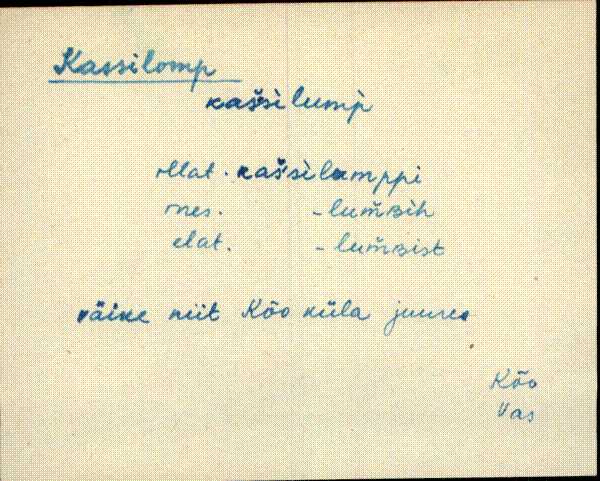 Kassilomp
kašsi lump
illat. kašsilumppi
ines. -lum̆ʙih
elat. -lum̆ʙist
väike niit Kõo küla juures
Kõo
Vas